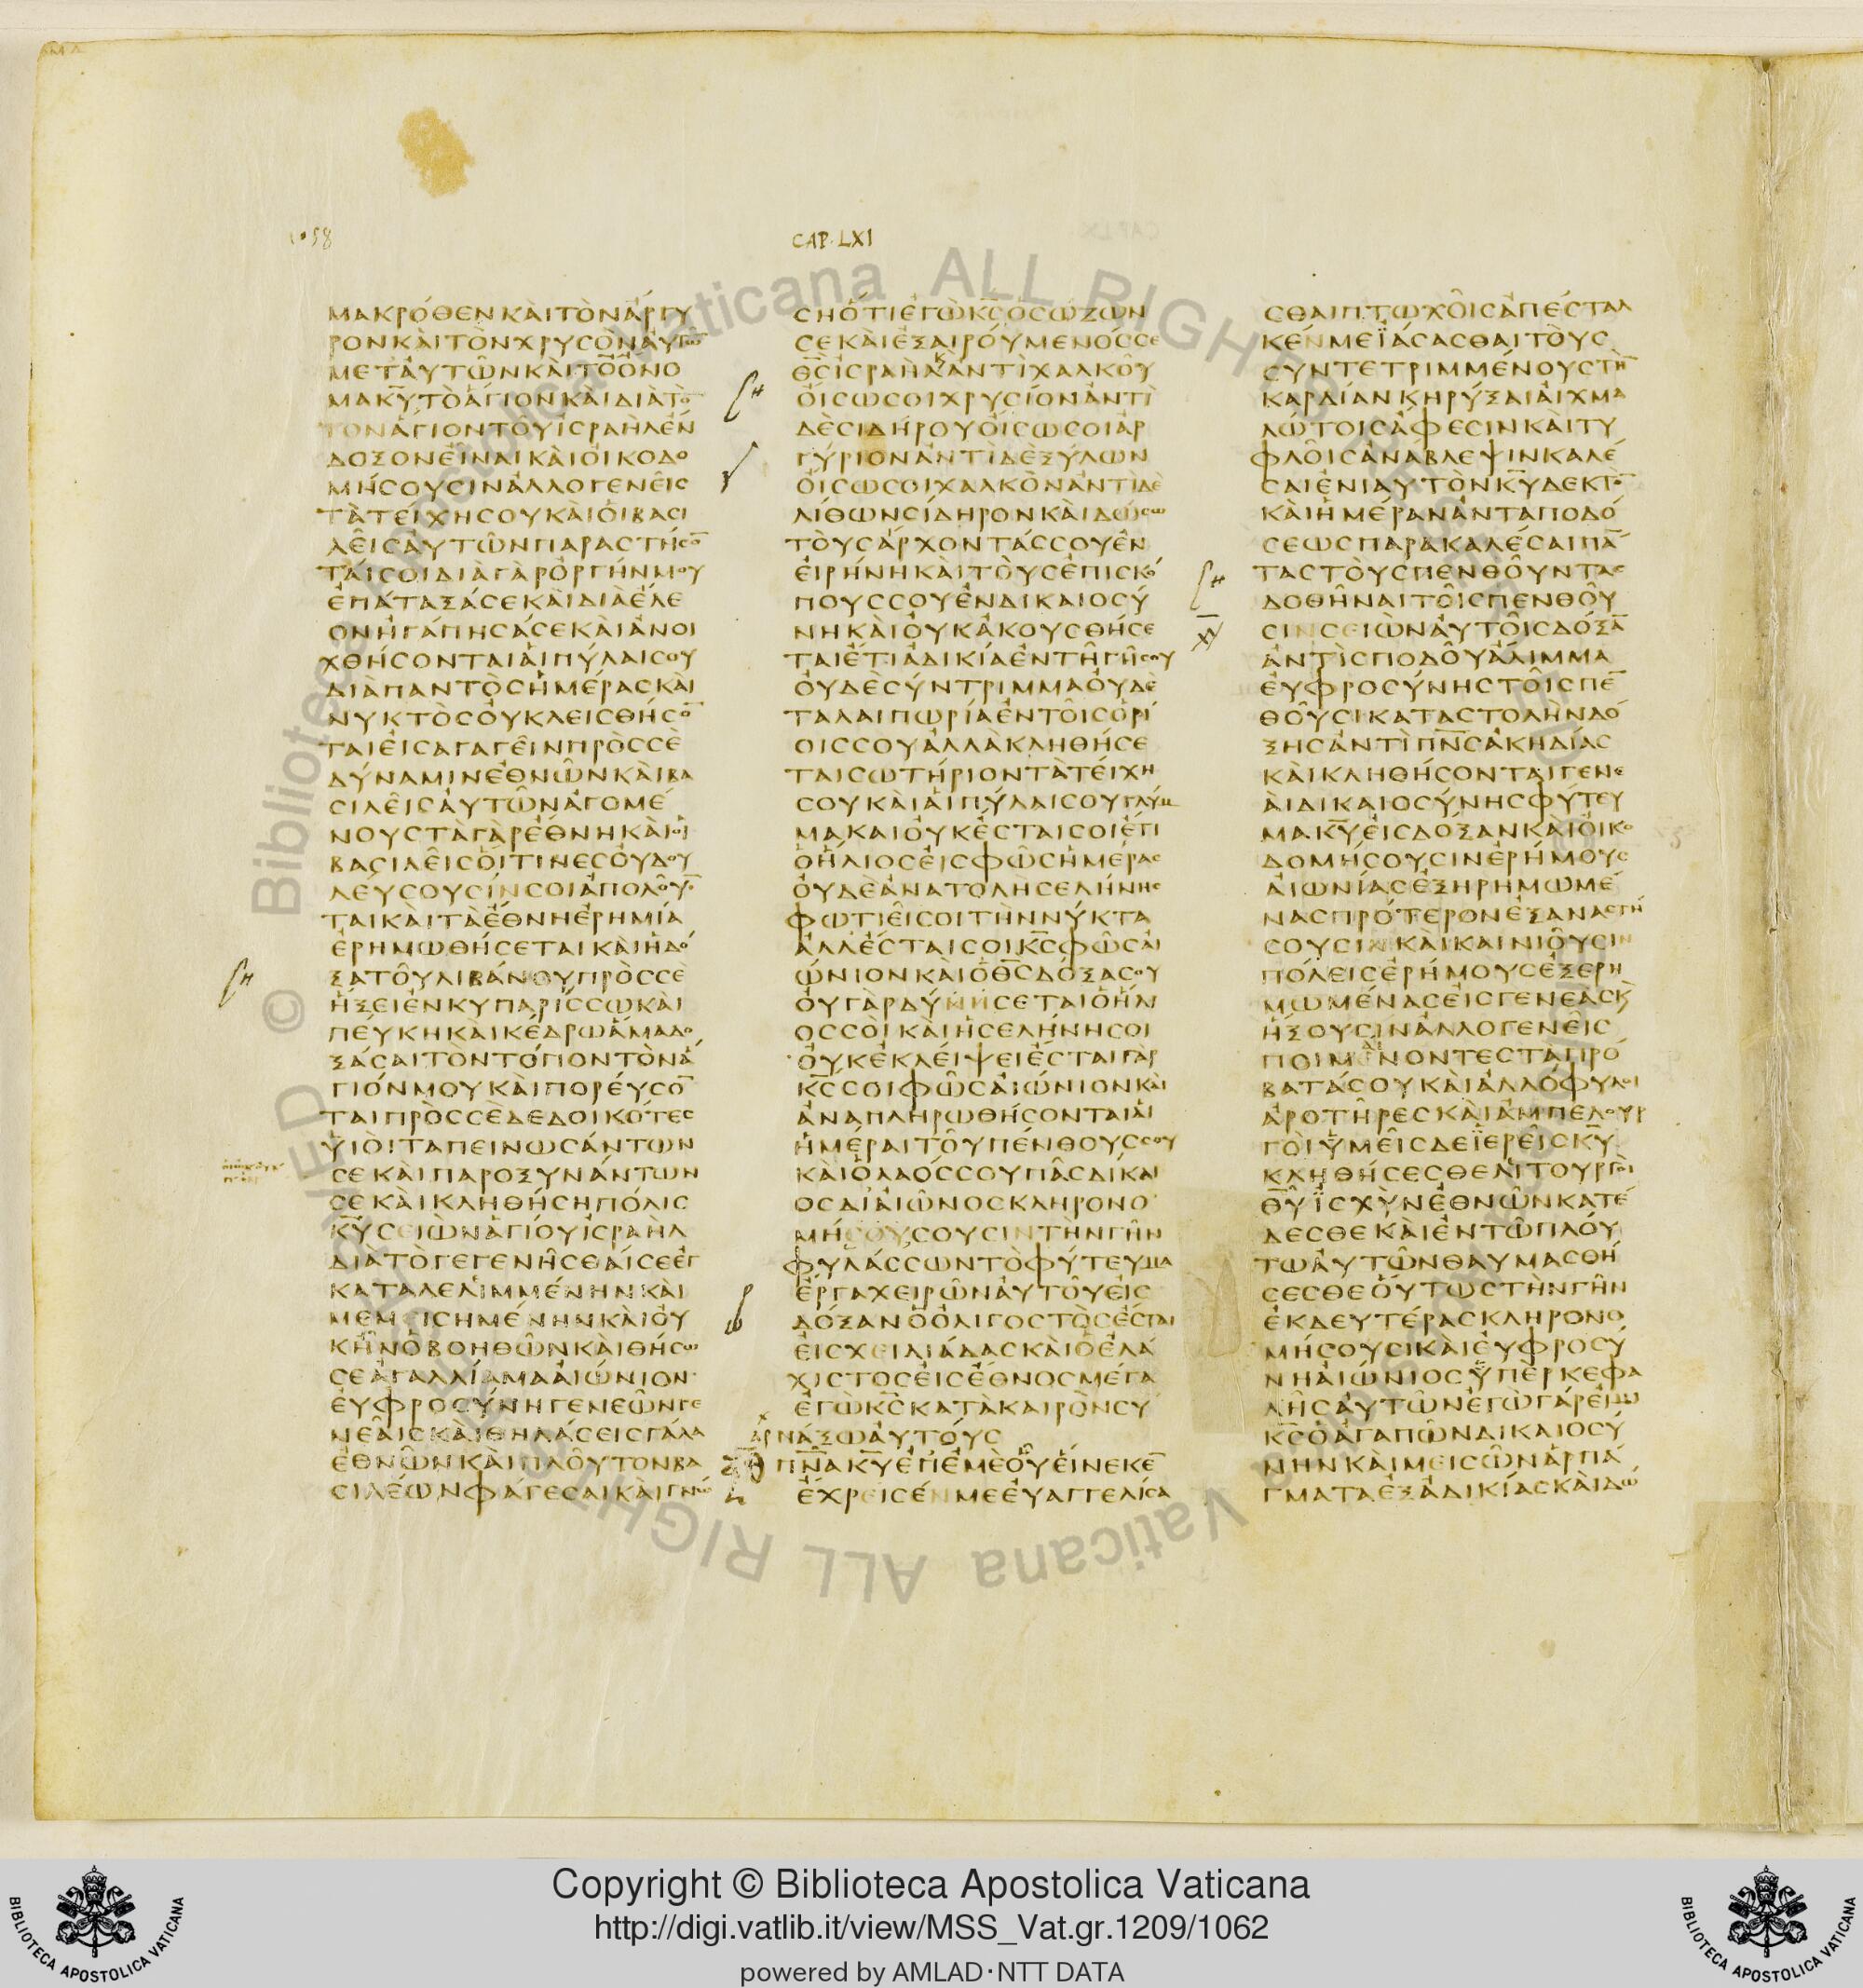 1058
CAP. LXI
ΜΑΚΡΌΘΕΝ ΚΑῚ ΤῸΝ ἌΡΓΥ
ΡΟΝ ΚΑῚ ΤῸΝ ΧΡΥϹῸΝ ἈΥΤΩ̄
ΜΕΤ ἈΥΤΩ͂Ν ΚΑῚ ΤΟ ὌΝΟ
ΜΑ Κ̅Υ̅ ΤῸ ἍΓΙΟΝ ΚΑῚ ΔΙᾺ ΤῸ
ΤΟΝ ἍΓΙΟΝ ΤΟΥ͂ ἸϹΡΑῊΛ ἜΝ
ΔΟΞΟΝ ἘΙ͂ΝΑΙ ΚΑῚ ὈΙΚΟΔΟ
ΜΉϹΟΥϹΙΝ ἈΛΛΟΓΕΝΕΙ͂Ϲ
ΤᾺ ΤΕΊΧΗ ϹΟΥ ΚΑῚ ὉΙ ΒΑϹΙ
ΛΕΙ͂Ϲ ἈΥΤΩ͂Ν ΠΑΡΑϹΤΉϹΟ̄
ΤΑΊ ϹΟΙ ΔΙᾺ ΓᾺΡ ὈΡΓΉΝ ΜΟΥ
ἘΠΆΤΑΞΆ ϹΕ ΚΑῚ ΔΙᾺ ἜΛΕ
ΟΝ ἨΓΆΠΗϹΆ ϹΕ ΚΑῚ ἈΝΟΙ
ΧΘΉϹΟΝΤΑΙ ἉΙ ΠΎΛΑΙ ϹΟΥ
ΔΙᾺ ΠΑΝΤῸϹ ἩΜΈΡΑϹ ΚΑῚ
ΝΥΚΤῸϹ ὈΥ ΚΛΕΙϹΘΉϹΟ̄
ΤΑΙ ἘΙϹΑΓΑΓΕΙ͂Ν ΠΡῸϹ ϹῈ
ΔΎΝΑΜΙΝ ἘΘΝΩ͂Ν ΚΑῚ ΒΑ
ϹΙΛΕΙ͂Ϲ ἈΥΤΩ͂Ν ἈΓΟΜΈ
ΝΟΥϹ ΤᾺ ΓᾺΡ ἜΘΝΗ ΚΑῚ ὉΙ
ΒΑϹΙΛΕΙ͂Ϲ ὍΙΤΙΝΕϹ ὈΥ ΔΟΥ
ΛΕΎϹΟΥϹΊΝ ϹΟΙ ἈΠΟΛΟΥ͂
ΤΑΙ ΚΑῚ ΤᾺ ἜΘΝΗ ἘΡΗΜΊΑ
ἘΡΗΜΩΘΉϹΕΤΑΙ ΚΑῚ Ἡ ΔΌ
ΞΑ ΤΟΥ͂ ΛΙΒΆΝΟΥ ΠΡῸϹ ϹῈ
ἭΞΕΙ ἘΝ ΚΥΠΑΡΊϹϹΩ ΚΑῚ
ΠΕΎΚΗ ΚΑῚ ΚΈΔΡΩ ἍΜΑ ΔΟ
ΞΆϹΑΙ ΤῸΝ ΤΌΠΟΝ ΤῸΝ Ἅ
ΓΙΟΝ ΜΟΥ ΚΑῚ ΠΟΡΕΎϹΟ̄
ΤΑΙ ΠΡῸϹ ϹῈ ΔΕΔΟΙΚΌΤΕϹ
ΥἹΟῚ ΤΑΠΕΙΝΩϹΆΝΤΩΝ
ϹΕ ΚΑῚ ΠΑΡΟΞΥΝΆΝΤΩΝ
ϹΕ ΚΑῚ ΚΛΗΘΉϹΗ ΠΌΛΙϹ
Κ̅Υ̅ ϹΕΙῺΝ ἉΓΊΟΥ ἸϹΡΑῊΛ
ΔΙᾺ ΤῸ ΓΕΓΕΝΗ͂ϹΘΑΊ ϹΕ ἘΓ
ΚΑΤΑΛΕΛΙΜΜΈΝΗΝ ΚΑῚ
ΜΕΜΙϹΗΜΈΝΗΝ ΚΑῚ ὈΥ
Κ ἮΝ Ὁ ΒΟΗΘΩ͂Ν ΚΑῚ ΘΉϹΩ
ϹΕ ἈΓΑΛΛΊΑΜΑ ἈΙΏΝΙΟΝ
ἘΥΦΡΟϹΎΝΗ ΓΕΝΕΩ͂Ν ΓΕ
ΝΕΑΙ͂Ϲ ΚΑῚ ΘΗΛΆϹΕΙϹ ΓΆΛΑ
ἘΘΝΩ͂Ν ΚΑῚ ΠΛΟΥ͂ΤΟΝ ΒΑ
ϹΙΛΈΩΝ ΦΆΓΕϹΑΙ ΚΑῚ ΓΝΏ
ϹΗ ὍΤΙ ἘΓῺ Κ̅Ϲ̅ Ὁ ϹΏΖΩΝ
ϹΕ ΚΑῚ ἘΞΑΙΡΟΎΜΕΝΟϹ ϹΕ
Θ̅Ϲ̅ ἸϹΡΑῊΛ ΚΑῚ ἈΝΤῚ ΧΑΛΚΟΥ͂
ὈΊϹΩ ϹΟΙ ΧΡΥϹΊΟΝ ἈΝΤῚ
ΔῈ ϹΙΔΉΡΟΥ ὈΊϹΩ ϹΟΙ ἈΡ
ΓΎΡΙΟΝ ἈΝΤῚ ΔῈ ΞΎΛΩΝ
ὈΊϹΩ ϹΟΙ ΧΑΛΚῸΝ ἈΝΤῚ ΔῈ
ΛΊΘΩΝ ϹΊΔΗΡΟΝ ΚΑῚ ΔΏϹΩ
ΤΟῪϹ ἌΡΧΟΝΤΆϹ ϹΟΥ ἘΝ
ἘΙΡΉΝΗ ΚΑῚ ΤΟῪϹ ἘΠΙϹΚΌ
ΠΟΥϹ ϹΟΥ ἘΝ ΔΙΚΑΙΟϹΎ
ΝΗ ΚΑῚ ὈΥΚ ἈΚΟΥϹΘΉϹΕ
ΤΑΙ ἜΤΙ ἈΔΙΚΊΑ ἘΝ ΤΗ͂ ΓΗ͂ ϹΟΥ
ὈΥΔῈ ϹΎΝΤΡΙΜΜΑ ὈΥΔῈ
ΤΑΛΑΙΠΩΡΊΑ ἘΝ ΤΟΙ͂Ϲ ὉΡΊ
ΟΙϹ ϹΟΥ ἈΛΛᾺ ΚΛΗΘΉϹΕ
ΤΑΙ ϹΩΤΉΡΙΟΝ ΤᾺ ΤΕΊΧΗ
ϹΟΥ ΚΑῚ ἉΙ ΠΎΛΑΙ ϹΟΥ ΓΛΎΜ
ΜΑ ΚΑΙ ὈΥΚ ἜϹΤΑΙ ϹΟΙ ἜΤΙ
Ὁ ἭΛΙΟϹ ἘΙϹ ΦΩ͂Ϲ ἩΜΈΡΑϹ
ὈΥΔῈ ἈΝΑΤΟΛῊ ϹΕΛΉΝΗϹ
ΦΩΤΙΕΙ͂ ϹΟΙ ΤῊΝ ΝΎΚΤΑ
ἈΛΛ ἜϹΤΑΙ ϹΟΙ Κ̅Ϲ̅ ΦΩ͂Ϲ ἈΙ
ΏΝΙΟΝ ΚΑῚ Ὁ Θ̅Ϲ̅ ΔΌΞΑ ϹΟΥ
ὈΥ ΓᾺΡ ΔΎϹΕΤΑΙ Ὁ ἭΛΙ
ΟϹ ϹΟῚ ΚΑῚ Ἡ ϹΕΛΉΝΗ ϹΟΙ
ὈΥΚ ἘΚΛΕΊΨΕΙ ἜϹΤΑΙ ΓᾺΡ
Κ̅Ϲ̅ ϹΟΙ ΦΩ͂Ϲ ἈΙΏΝΙΟΝ ΚΑῚ
ἈΝΑΠΛΗΡΩΘΉϹΟΝΤΑΙ ἉΙ
ἩΜΈΡΑΙ ΤΟΥ͂ ΠΈΝΘΟΥϹ ϹΟΥ
ΚΑῚ Ὁ ΛΑΌϹ ϹΟΥ ΠΑ͂Ϲ ΔΊΚΑΙ
ΟϹ ΑἸ ἈΙΩ͂ΝΟϹ ΚΛΗΡΟΝΟ
ΜΉϹΟΥϹΙΝ ΤῊΝ ΓΗ͂Ν
ΦΥΛΆϹϹΩΝ ΤῸ ΦΎΤΕΥΜΑ
ἜΡΓΑ ΧΕΙΡΩ͂Ν ἈΥΤΟΥ͂ ἘΙϹ
ΔΌΞΑΝ Ὁ ὈΛΙΓΟϹΤῸϹ ἜϹΤΑΙ
ἘΙϹ ΧΕΙΛΙΆΔΑϹ ΚΑῚ Ὁ ἘΛΆ
ΧΙϹΤΟϹ ἘΙϹ ἜΘΝΟϹ ΜΈΓΑ
ἘΓῺ Κ̅Ϲ̅ ΚΑΤᾺ ΚΑΙΡῸΝ ϹΥ
ΝΑΞΩ ἈΥΤΟΎϹ
Π̅Ν̅Α̅ Κ̅Υ̅ ἘΠ ἘΜῈ ὉΥ͂ ἘΊΝΕΚΕ̄
ἜΧΡΕΙϹΈΝ ΜΕ ἘΥΑΓΓΕΛΊϹΑ
ϹΘΑΙ ΠΤΩΧΟΙ͂Ϲ ἈΠΈϹΤΑΛ
ΚΈΝ ΜΕ ἸΆϹΑϹΘΑΙ ΤΟῪϹ
ϹΥΝΤΕΤΡΙΜΜΈΝΟΥϹ ΤῊ̄
ΚΑΡΔΊΑΝ ΚΗΡΎΞΑΙ ἈΙΧΜΑ
ΛΏΤΟΙϹ ἌΦΕϹΙΝ ΚΑῚ ΤΥ
ΦΛΟΙ͂Ϲ ἈΝΆΒΛΕΨΙΝ ΚΑΛΈ
ϹΑΙ ἘΝΙΑΥΤῸΝ Κ̅Υ̅ ΔΕΚΤῸ̄
ΚΑῚ ἩΜΈΡΑΝ ἈΝΤΑΠΟΔΌ
ϹΕΩϹ ΠΑΡΑΚΑΛΈϹΑΙ ΠΆ̄
ΤΑϹ ΤΟῪϹ ΠΕΝΘΟΥ͂ΝΤΑϹ
ΔΟΘΗ͂ΝΑΙ ΤΟΙ͂Ϲ ΠΕΝΘΟΥ͂
ϹΙΝ ϹΕΙῺΝ ἈΥΤΟΙ͂Ϲ ΔΌΞᾹ
ἈΝΤῚ ϹΠΟΔΟΥ͂ ἌΛΙΜΜΑ
ἘΥΦΡΟϹΎΝΗϹ ΤΟΙ͂Ϲ ΠΕ̄
ΘΟΥ͂ϹΙ ΚΑΤΑϹΤΟΛῊΝ ΔΌ
ΞΗϹ ἈΝΤῚ Π̅Ν̅Ϲ̅ ἈΚΗΔΊΑϹ
ΚΑῚ ΚΛΗΘΉϹΟΝΤΑΙ ΓΕΝΕ
ΑῚ ΔΙΚΑΙΟϹΎΝΗϹ ΦΎΤΕΥ
ΜΑ Κ̅Υ̅ ἘΙϹ ΔΌΞΑΝ ΚΑῚ ὈΙΚΟ
ΔΟΜΉϹΟΥϹΙΝ ἘΡΉΜΟΥϹ
ἈΙΩΝΊΑϹ ἘΞΗΡΗΜΩΜΈ
ΝΑϹ ΠΡΌΤΕΡΟΝ ἘΞΑΝΑϹΤΉ
ϹΟΥϹΙΝ ΚΑῚ ΚΑΙΝΙΟΥ͂ϹΙΝ
ΠΌΛΕΙϹ ἘΡΉΜΟΥϹ ἘΞΕΡΗ
ΜΩΜΈΝΑϹ ἘΙϹ ΓΕΝΕᾺϹ Κ
ἭΞΟΥϹΙΝ ἈΛΛΟΓΕΝΕΙ͂Ϲ
ΠΟΙΜΑΊΝΟΝΤΕϹ ΤᾺ ΠΡΌ
ΒΑΤΆ ϹΟΥ ΚΑῚ ἈΛΛΌΦΥΛΟΙ
ἈΡΟΤΗ͂ΡΕϹ ΚΑῚ ἈΜΠΕΛΟΥΡ
ΓΟῚ ὙΜΕΙ͂Ϲ ΔΕ ἹΕΡΕΙ͂Ϲ Κ̅Υ̅
ΚΛΗΘΉϹΕϹΘΕ ΛΙΤΟΥΡΓΟῚ
Θ̅Υ̅ ἸϹΧῪΝ ἘΘΝΩ͂Ν ΚΑΤΈ
ΔΕϹΘΕ ΚΑῚ ἘΝ ΤΩ͂ ΠΛΟΎ
ΤΩ ἈΥΤΩ͂Ν ΘΑΥΜΑϹΘΉ
ϹΕϹΘΕ ὍΥΤΩϹ ΤῊΝ ΓΗ͂Ν
ἘΚ ΔΕΥΤΈΡΑϹ ΚΛΗΡΟΝΟ
ΜΉϹΟΥϹΙ ΚΑῚ ἘΥΦΡΟϹΎ
ΝΗ ἈΙΏΝΙΟϹ ὙΠῈΡ ΚΕΦΑ
ΛΗ͂Ϲ ἈΥΤΩ͂Ν ἘΓῺ ΓΆΡ ἘΙΜΙ
Κ̅Ϲ̅ Ὁ ἈΓΑΠΩ͂Ν ΔΙΚΑΙΟϹΎ
ΝΗΝ ΚΑῚ ΜΕΙϹΩ͂Ν ἉΡΠΆ
ΓΜΑΤΑ ἘΞ ἈΔΙΚΊΑϹ ΚΑῚ ΔΩ
Copyright © Biblioteca Apostolica Vaticana
http://digi.vatlib.it/view/MSS_Vat.gr.1209/1062
powered by AMLAD·NTT DATA
BIBLIOTECA APOSTOLICA VATICANA
BIBLIOTECA APOSTOLICA VATICANA